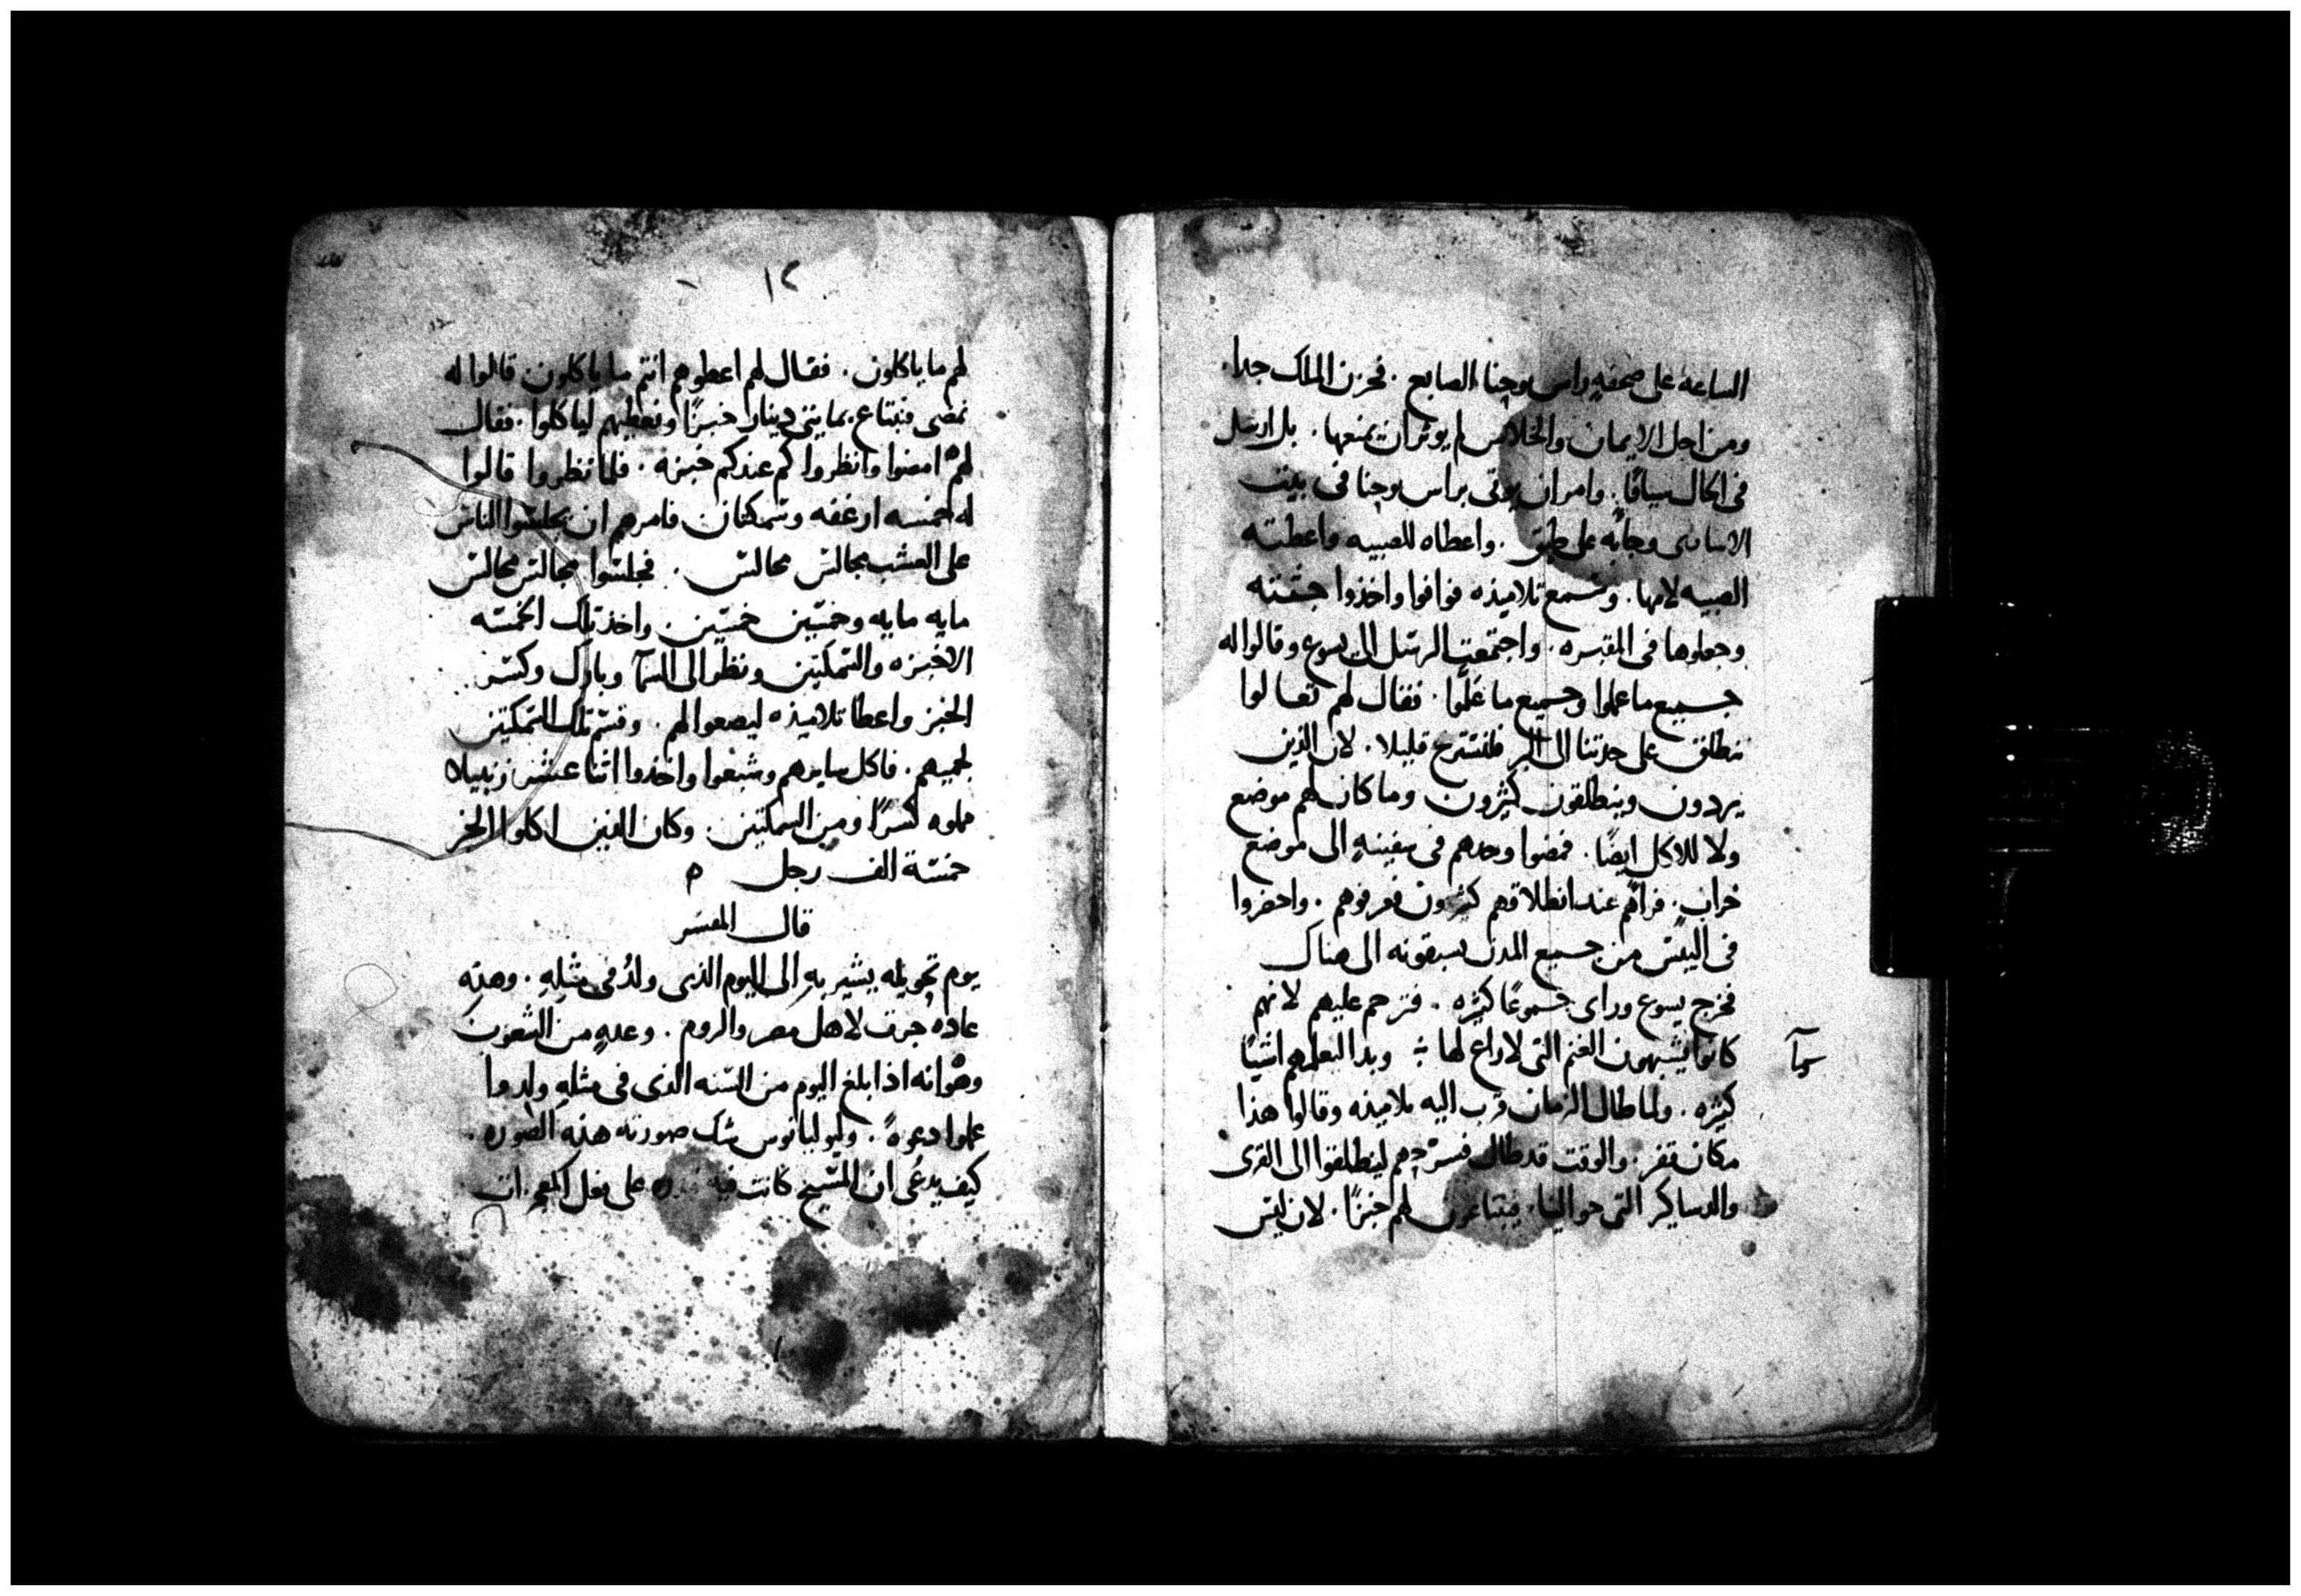 الساعه على صحفه راس يوحنا الصابع . فحزن الملك جدا .
ومن اجل الايمان والجلاس لم يوثر ان يمنعها . بل ارسل
فى الحال سيافًا . وامر ان يوتى براس يوحنا فى بيت
الاسارى وجابه على طبق . واعطاه للصبيه واعطته
الصبيه لامها . وسمع تلاميذه فوافوا واخذوا جثته
وجعلوها فى المقبره . واجتمعت الرسل الى يسوع وقالوا له
جميع ما عملوا وجميع ما علّموا . فقال لهم تعالوا
ننطلق على حدتنا الى البر فلنستريح قليلا . لان الذين
يردون وينطلقون كثيرون وما كان لهم موضع
ولا للاكل ايضًا . فمضوا وحدهم فى سفينه الى موضع
خراب . فراهم عند انطلاقهم كثيرون فعرفوهم . واحضروا
فى اليبس من جميع المدن يسبقونه الى هناك
فخرج يسوع وراى جموعًا كثيره . فترحم عليهم لانهم
كانوا يشبهون الغنم التى لا راع لها ؞ وبدا ليعلمهم اشيا
كثيره . ولما طال الزمان قرب اليه تلاميذه وقالوا هذا
مكان قفر . والوقت قد طال فسرحهم لينطلقوا الى القرى
والدساكر التى حوالينا . فيبتاعون لهم خبزًا . لان ليس
١٢
لهم ما ياكلون . فقال لهم اعطوهم انتم ما ياكلون قالوا له
نمضى فنبتاع بمايتى دينار خبزًا ونعطيهم لياكلوا . فقال
لهم امضوا وانظروا كم عندكم خبزه . فلما نظروا قالوا
له خمسه ارغفه وسمكتان فامرهم ان يجلسوا الناس
على العشب مجالس مجالس . فجلسوا مجالس مجالس
مايه مايه وخمسين خمسين . واخذ تلك الخمسه
الاخبزه والسمكتين ونظر الى السمآ وبارك وكسر
الخبز واعطا تلاميذه ليضعوا لهم . وقسم تلك السمكتين
لجميعهم . فاكل سايرهم وشبعوا واخذوا اثنا عشر زنبيلا
مملوه كسرًا ومن السمكتين . وكان الذين اكلوا الخبز
خمسة الف رجل ه
قال المفسر
يوم تحويله يشير به الى اليوم الذى ولد فى مثله . وهذه
عاده جرت لاهل مصر والروم . وعده من الشعوب
وهو انه اذا بلغ اليوم من السنه الذى فى مثله ولدوا
عملوا دعوه . وليوليانوس شك صورته هذه الصوره .
كيف يدعى ان المسيح كانت فيه على فعل المعجزات